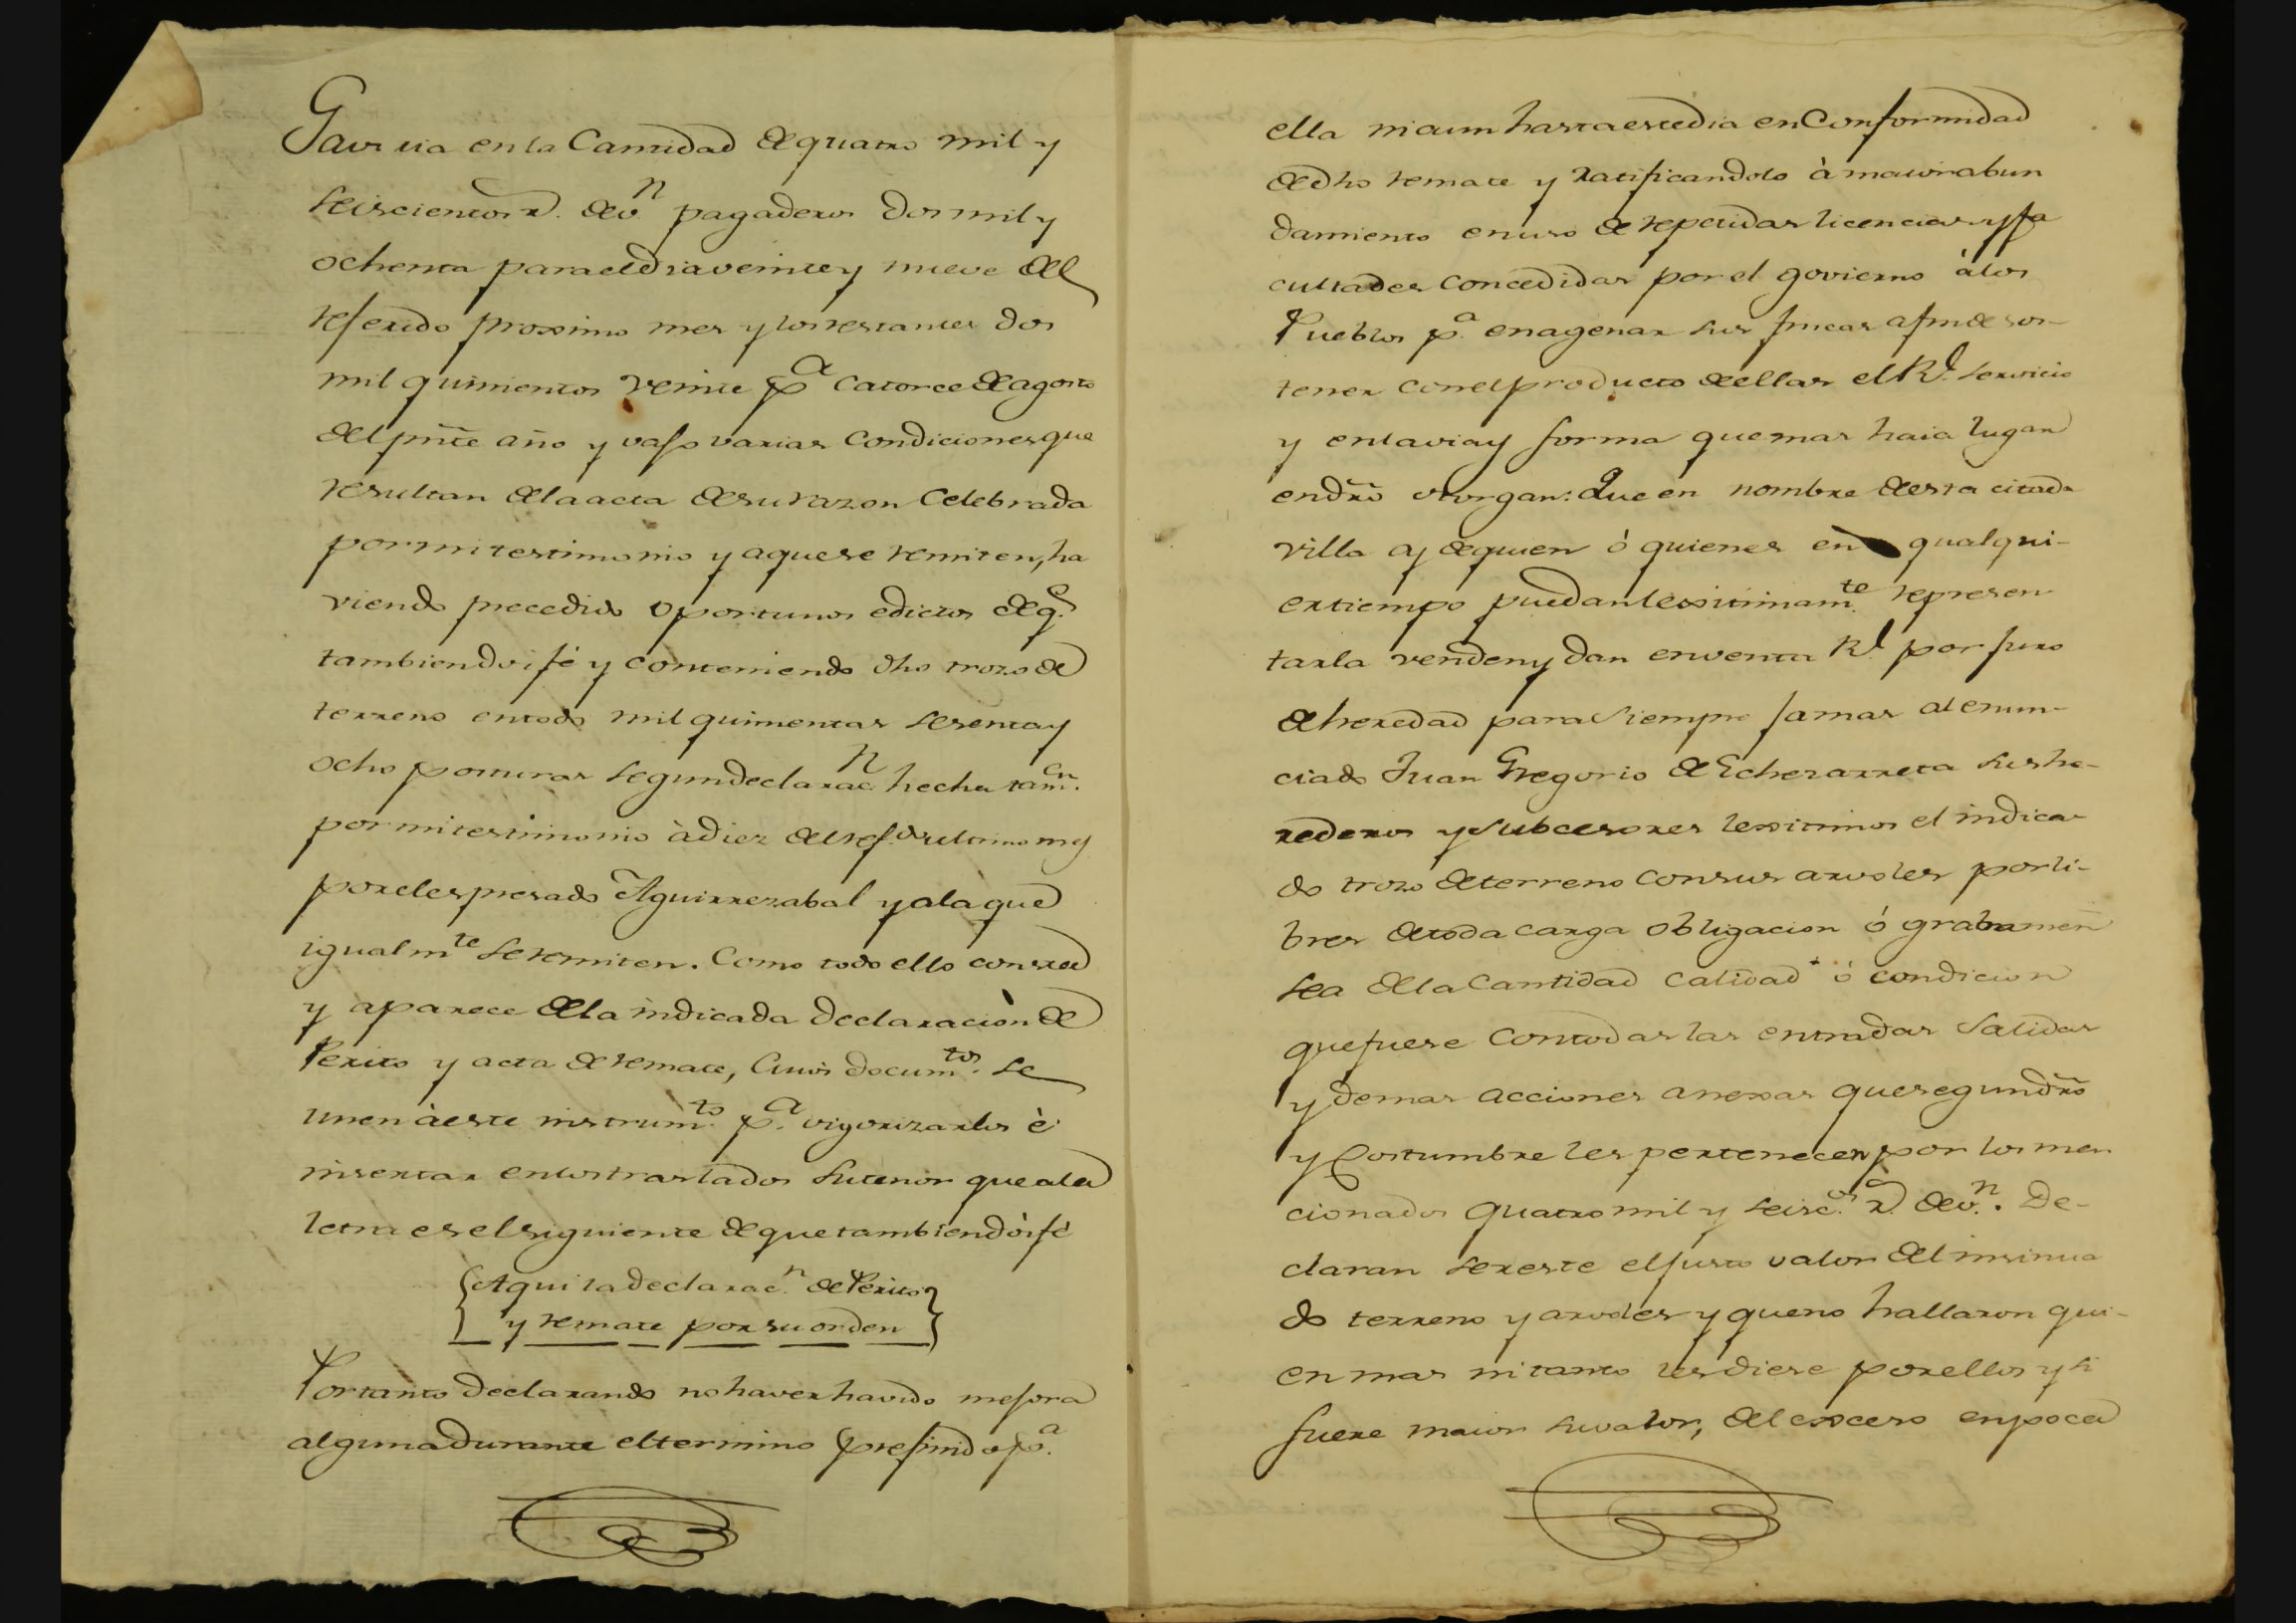 Gavria en la Cantidad de quatro mil y
seiscientos r.^s de v.^n pagaderos dos mil y
ochenta para el dia veinte y nueve del
referido proximo mes y los restantes dos
mil quinientos veinte p.^a catorce de agosto
del pñte año y vajo varias Condiciones que
resultan de la acta de su razon Celebrada
por mi testimonio y a que se remiten, ha
viendo precedido oportunos edictos de q.^e
tambien doi fé y conteniendo dho trozo de
terreno en todo mil quinientas sesenta y
ocho posturas segun declarac.^n hecha tam.^en
por mi testimonio à diez del ref.^do ultimo mes
por el espresado Aguirrezabal y a la que
igualm^te se remiten. Como todo ello consta
y aparece de la indicada declaraciòn de
Perito y acta de remate, Cuios docum.^tos se
unen à este instrum.^to p.^a vigorizarlos è
insertar en los traslados su tenor que a la
letra es el siguiente de que tambien doi fé
{Aqui la declarac.^n de Perito}
{y remate por su orden}
Por tanto declarando no haver havido mejora
alguna durante el termino prefinido p.^a
ella ni aun hasta este dia en Conformidad
de dho remate y ratificandolo à maior abun
damiento en uso de repetidas licencias y fa
cultades concedidas por el govierno à los
Pueblos p.^a enagenar sus fincas a fin de sos-
tener con el producto de ellas el R.^l servicio
y en la via y forma que mas haia lugar
en dr̃o otorgan: Que en nombre de esta citada
villa y de quien ó quienes en qualqui-
er tiempo puedan lexitimam.^te represen
tarla venden y dan en venta R.^l por juro
de heredad para siempre jamas al enun-
ciado Juan Gregorio de Echezarreta sus he-
rederos y subcesores lexitimos el indica-
do trozo de terreno con sus arvoles por li-
bres de toda carga obligacion ó grabamen
sea de la Cantidad calidad ó condicion
que fuese con todas las entradas salidas
y demas acciones anexas que segun dr̃o
y Costumbre les pertenecen por los men
cionados quatro mil y seisc.^os r.^s de v.^n. De-
claran ser este el justo valor del insinua
do terreno y arvoles y que no hallaron qui-
en mas ni tanto les diese por ellos y si
fuere maior su valor, del exceso en poca